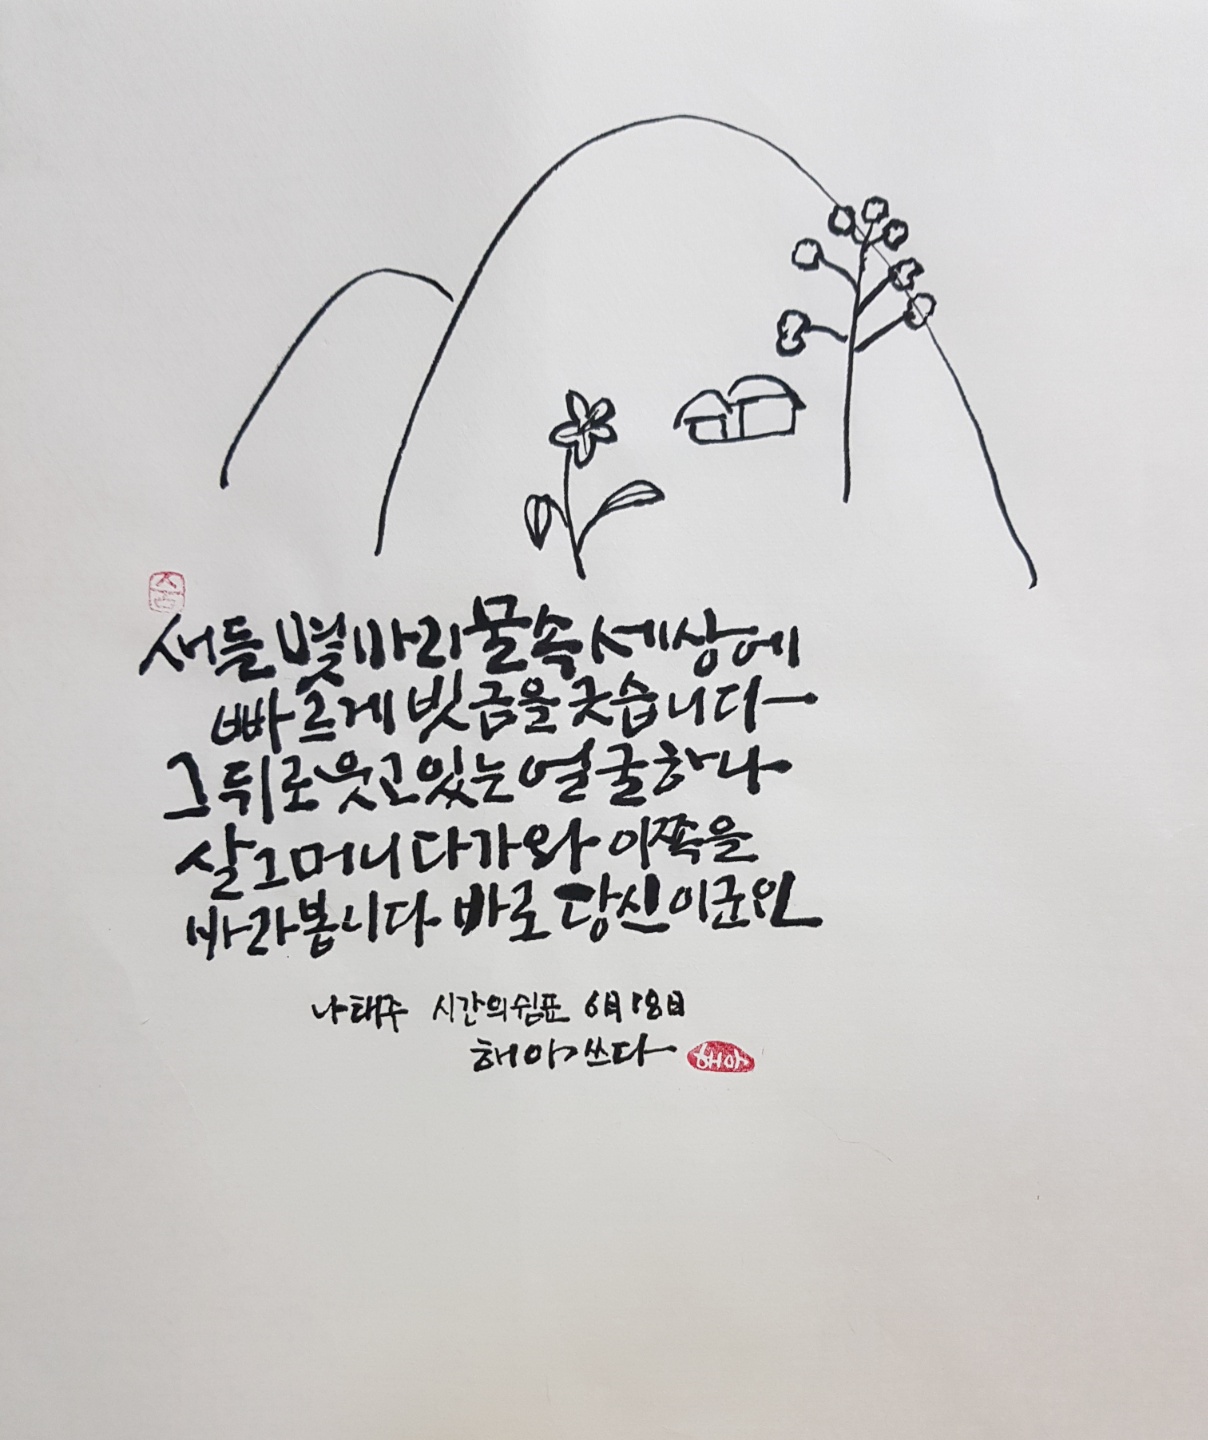 숨
새들 몇 마리 물속 세상에
빠르게 빗금을 긋습니다
그 뒤로 웃고 있는 얼굴 하나
살그머니 다가와 이쪽을
바라봅니다 바로 당신이군요
나태주 시간의 쉼표 6月 18日
해아쓰다 해아